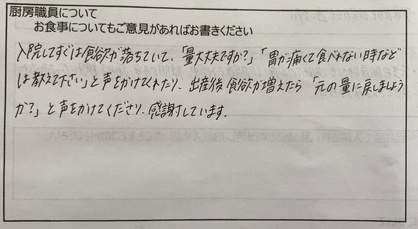 厨房職員について
お食事についてもご意見があればお書きください
入院してすぐは食欲が落ちていて、「量大丈夫ですか?」「胃が痛くて食べれない時など
は教えて下さい」と声をかけてくれたり、出産後食欲が増えたら「元の量に戻しましょう
か?」と声をかけてくださり、感謝しています。